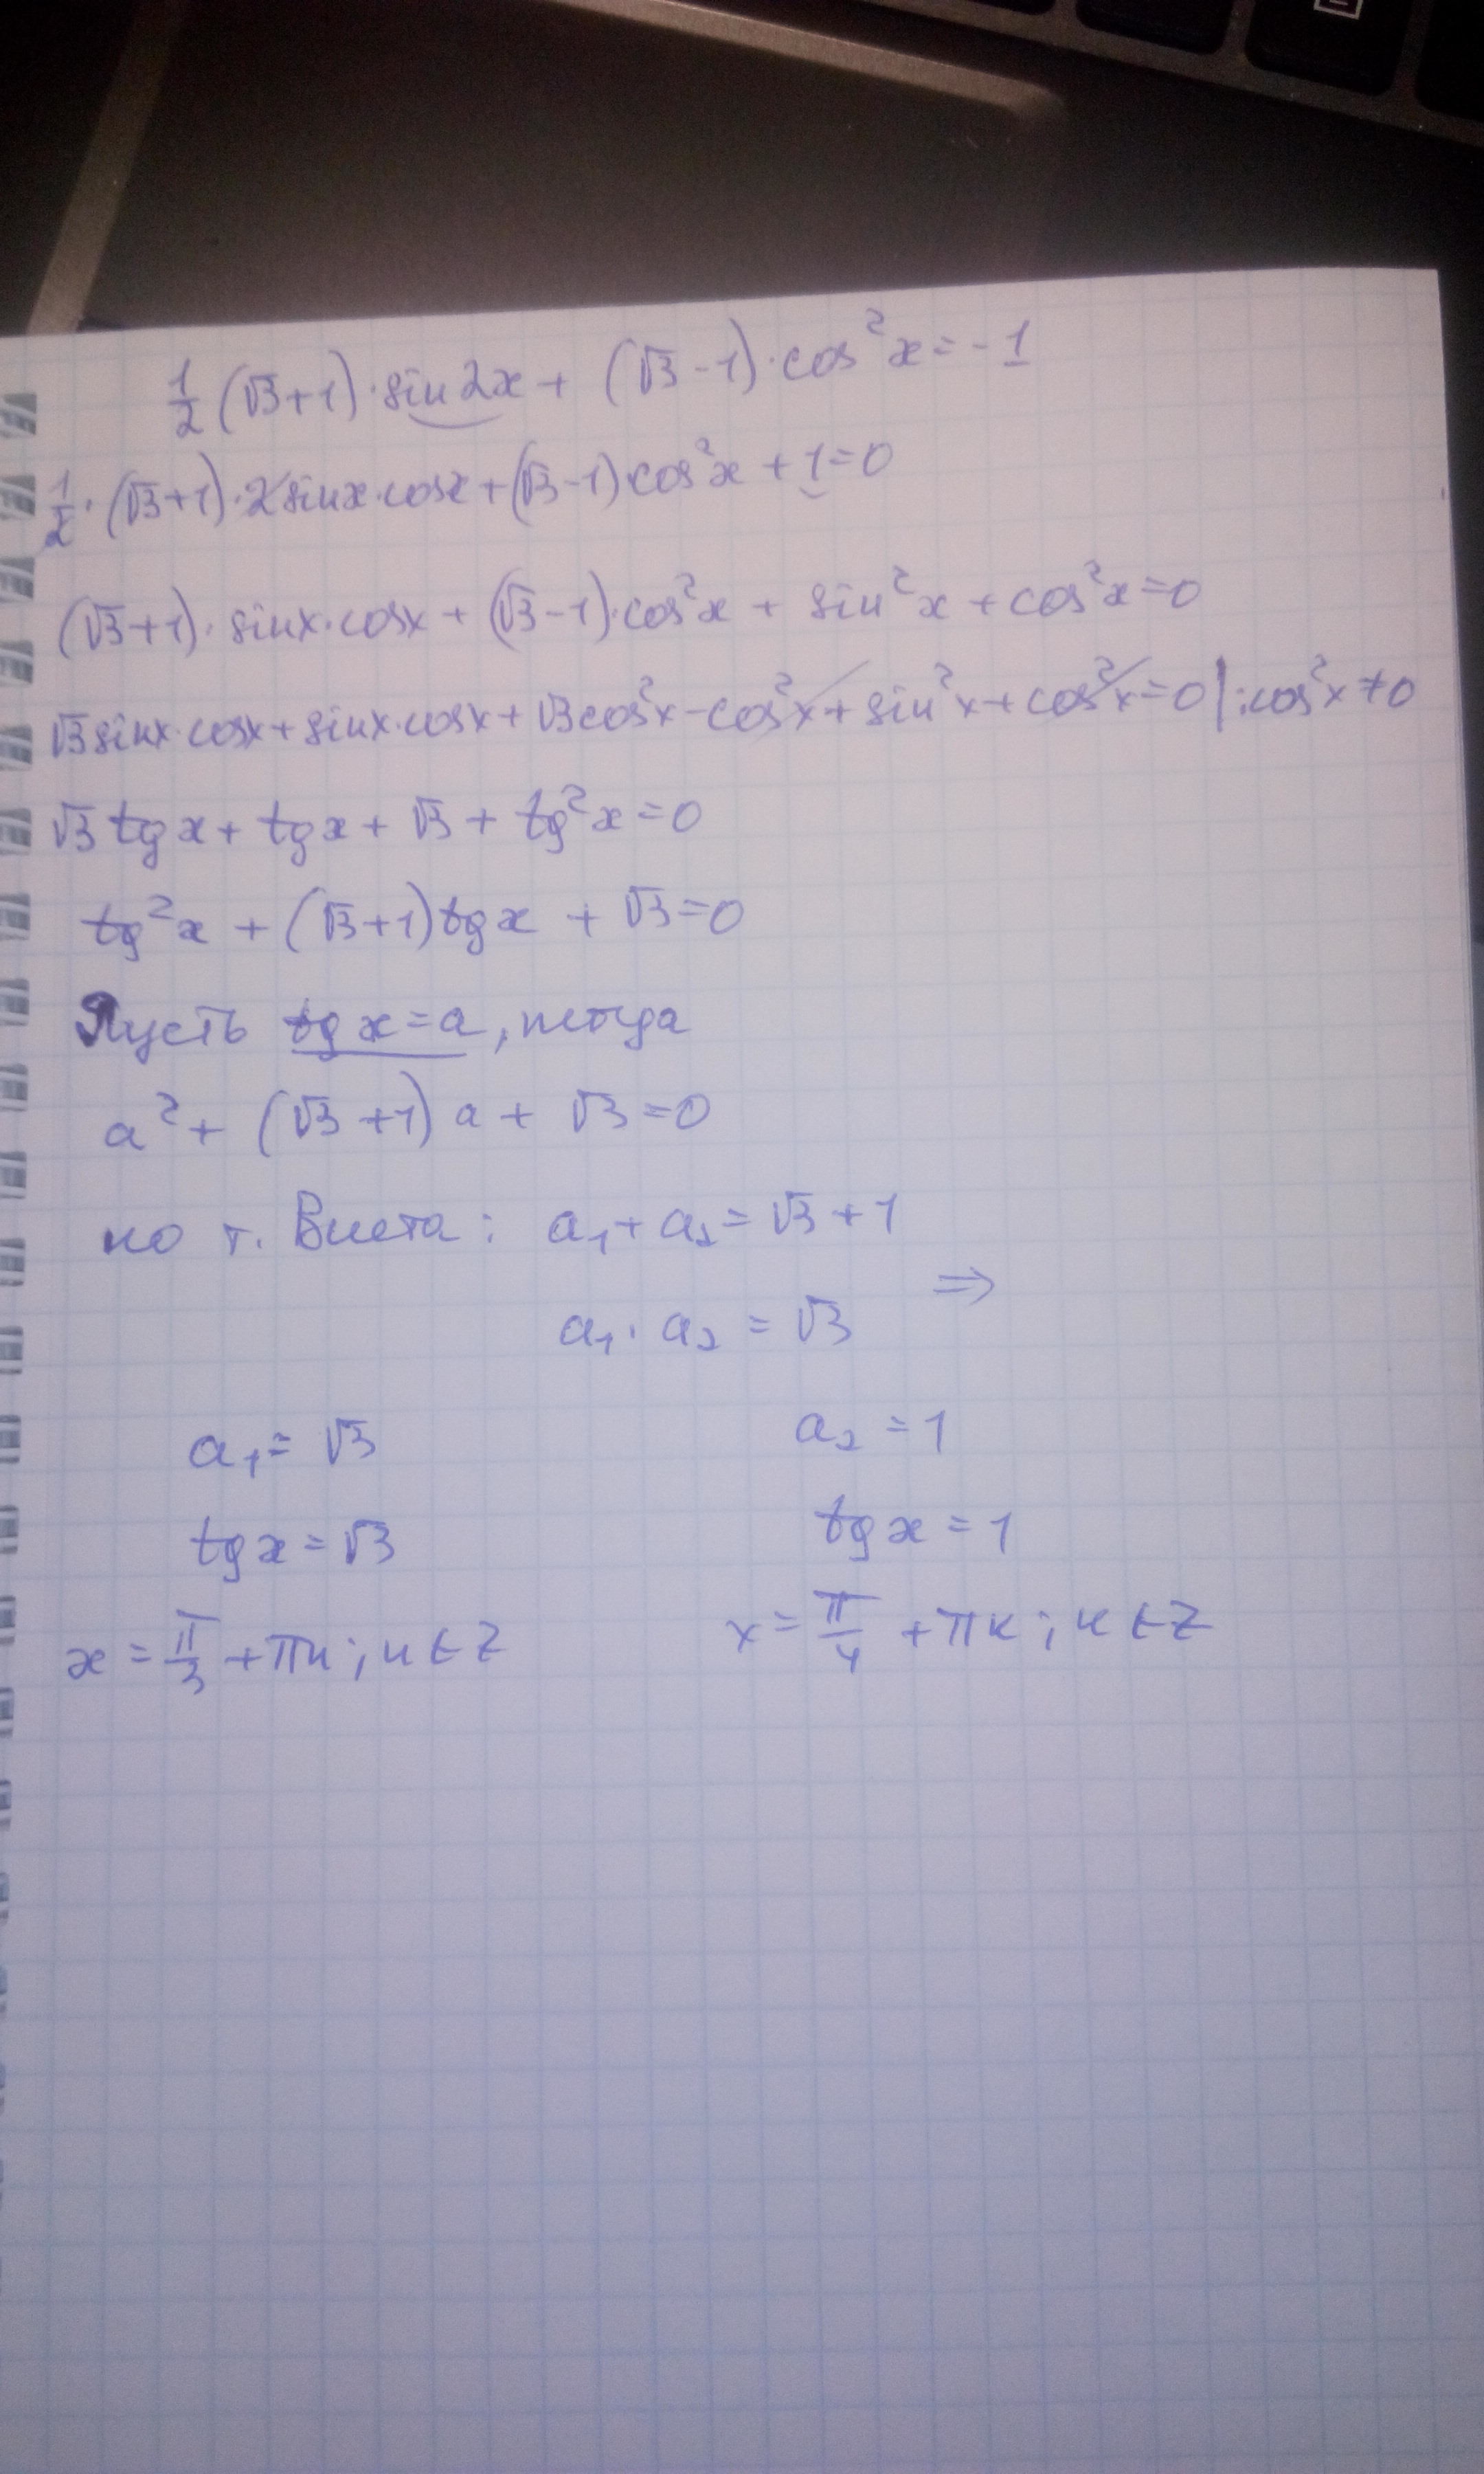 1/2 (√3+1)·sin2x + (√3-1)·cos²x = -1
1/2·(√3+1)·2sinx·cosx+(√3-1)cos²x+1=0
(√3+1)·sinx·cosx+(√3-1)·cos²x+sin²x+cos²x=0
√3sinx·cosx+sinx·cosx+√3cos²x-cos²x+sin²x+cos²x=0|:cos²x≠0
√3tgx+tgx+√3+tg²x=0
tg²x+(√3+1)tgx+√3=0
Пусть tgx=a, тогда
a²+(√3+1)a+√3=0
по т. Виета: a₁+a₂=√3+1
⇒
a₁·a₂=√3
a₁=√3 a₂=1
tgx=√3 tgx=1
x=π/3+πn; n∈Z x=π/4+πк; к∈Z